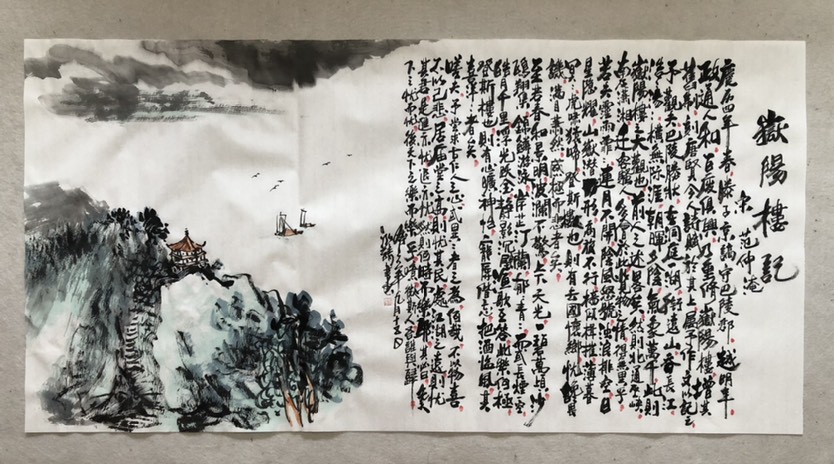 嶽陽樓記
宋 范仲淹
慶曆四年春滕子京謫守巴陵郡越明年
政通人和百廢俱興乃重修嶽陽樓增其
舊制刻唐賢今人詩賦於其上屬予作文以記之
予觀夫巴陵勝狀在洞庭一湖銜遠山吞長江
浩浩湯湯橫無際涯朝暉夕陰氣象萬千此則
嶽陽樓之大觀也前人之述備矣然則北通巫峽
南極瀟湘遷客騷人多會於此覽物之情得無異乎
若夫霪雨霏霏連月不開陰風怒號濁浪排空日
星隱耀山嶽潛形商旅不行檣傾楫摧薄暮
冥冥虎嘯猿啼登斯樓也則有去國懷鄉憂讒畏
譏滿目蕭然感極而悲者矣
至若春和景明波瀾不驚上下天光一碧萬頃沙
鷗翔集錦鱗游泳岸芷汀蘭郁郁青青而或長煙一空
皓月千里浮光躍金靜影沉璧漁歌互答此樂何極
登斯樓也則有心曠神怡寵辱偕忘把酒臨風其
喜洋洋者矣
嗟夫予嘗求古仁人之心或異二者之為何哉不以物喜
不以己悲居廟堂之高則憂其民處江湖之遠則憂
其君是進亦憂退亦憂然則何時而樂耶其必曰先天
下之憂而憂後天下之樂而樂乎